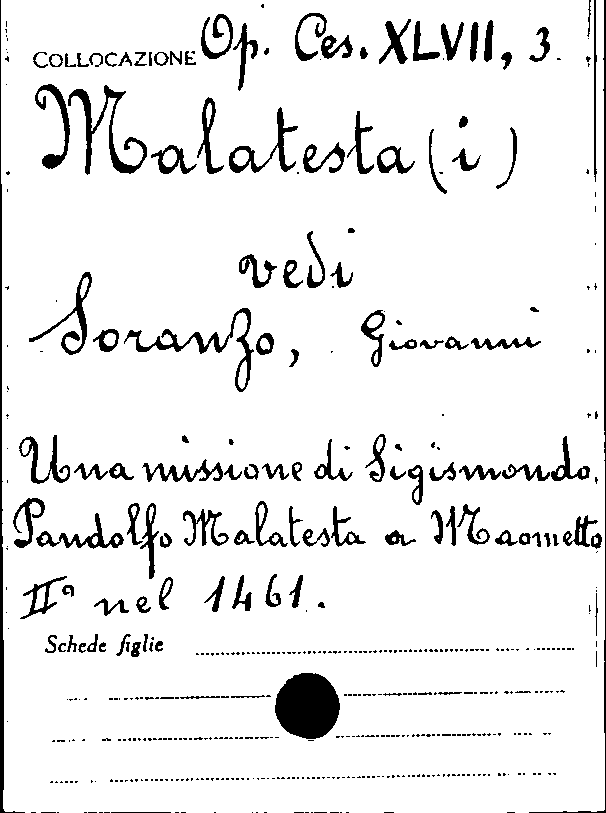 COLLOCAZIONE Op. Ces. XLVII, 3.
Malatesta (i)
vedi
Soranzo, Giovanni
Una missione di Sigismondo
Pandolfo Malatesta a Maometto
IIº nel 1461.
Schede figlie